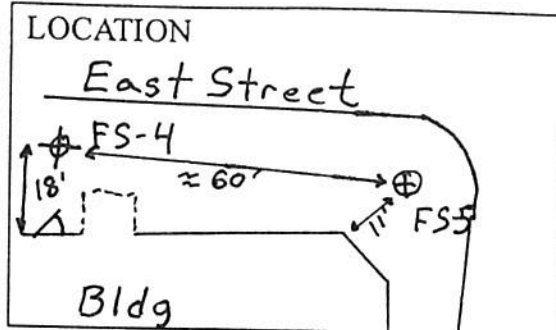 LOCATION
East Street
FS-4
≈ 60'
18'
11'
FS-5
Bldg